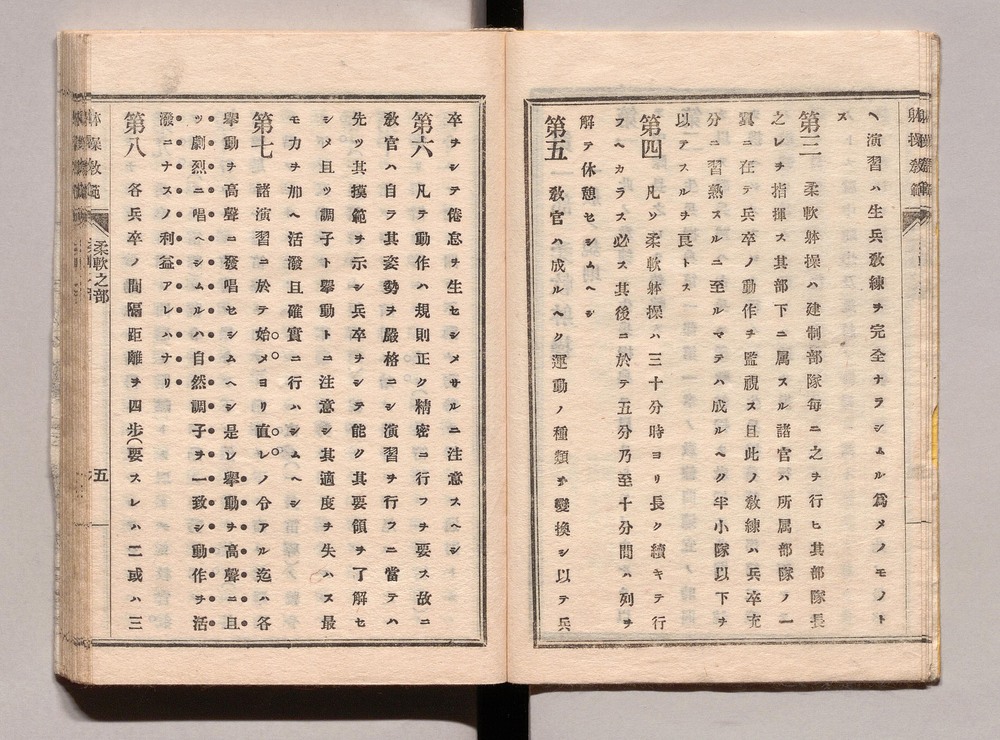 躰操教範
ヘ演習ハ生兵敎練ヲ完全ナラシムル爲メノモノト
ス
第三　柔軟躰操ハ建制部隊毎ニ之ヲ行ヒ其部隊長
之レヲ指揮ス其部下ニ属スル諸官ハ所属部隊ノ一
翼ニ在テ兵卒ノ動作ヲ監視ス且此ノ敎練ハ兵卒充
分ニ習熟スルニ至ルマテハ成ルヘク半小隊以下ヲ
以テスルヲ良トス
第四　凡ソ柔軟躰操ハ三十分時ヨリ長ク續キテ行
フヘカラス必ス其後ニ於テ五分乃至十分間ハ列ヲ
解テ休憩セシムヘシ
第五　敎官ハ成ルヘク運動ノ種類ヲ變換シ以テ兵
卒ヲシテ倦怠ヲ生セシメサルニ注意スヘシ
第六　凡テ動作ハ規則正ク精密ニ行フヲ要ス故ニ
敎官ハ自ラ其姿勢ヲ嚴格ニシ演習ヲ行フニ當テハ
先ツ其摸範ヲ示シ兵卒ヲシテ能ク其要領ヲ了解セ
シメ且ツ調子ト擧動トニ注意シ其適度ヲ失ハス最
モ力ヲ加ヘ活潑且確實ニ行ハシムヘシ
第七　諸演習ニ於テ始メヨリ直レノ令アル迄ハ各
擧動ヲ高聲ニ發唱セシムヘシ是レ擧動ヲ高聲ニ且
ツ劇烈ニ唱ヘシムルハ自然調子ヲ一致シ動作ヲ活
潑ニナスノ利益アレハナリ
第八　各兵卒ノ間隔距離ヲ四步(要スレハ二或ハ三
柔軟之部
五